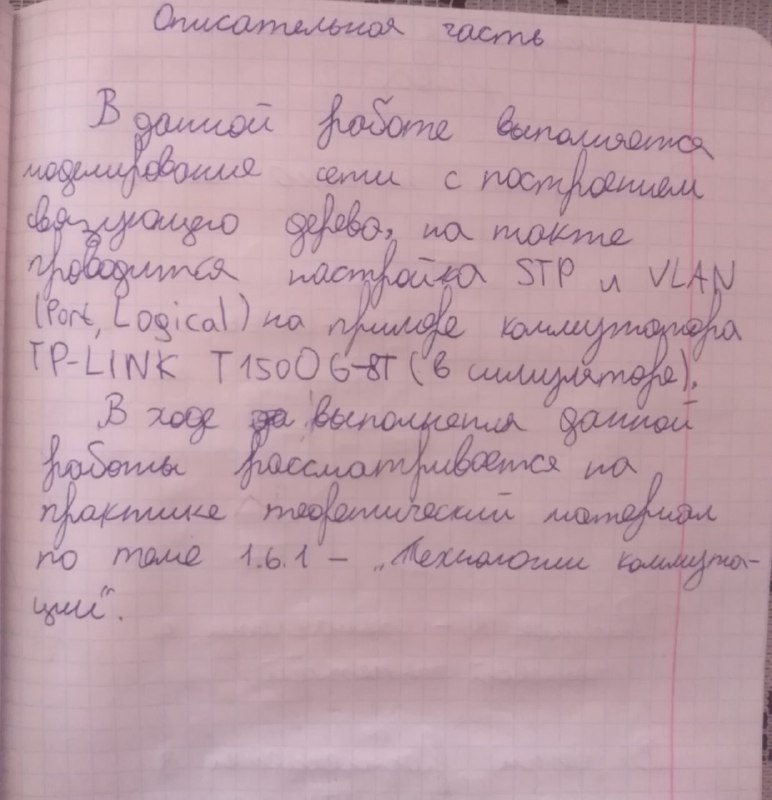 Описательная часть
В данной работе выполняется
моделирование сети с построением
связующего дерева, на такте
проводится настройка STP и VLAN
(Port, Logical) на примере коммутатора
TP-LINK T1500G-8T (в симуляторе).
В ходе выполнения данной
работы рассматривается на
практике теоретический материал
по теме 1.6.1 – „Технологии коммута-
ции“.